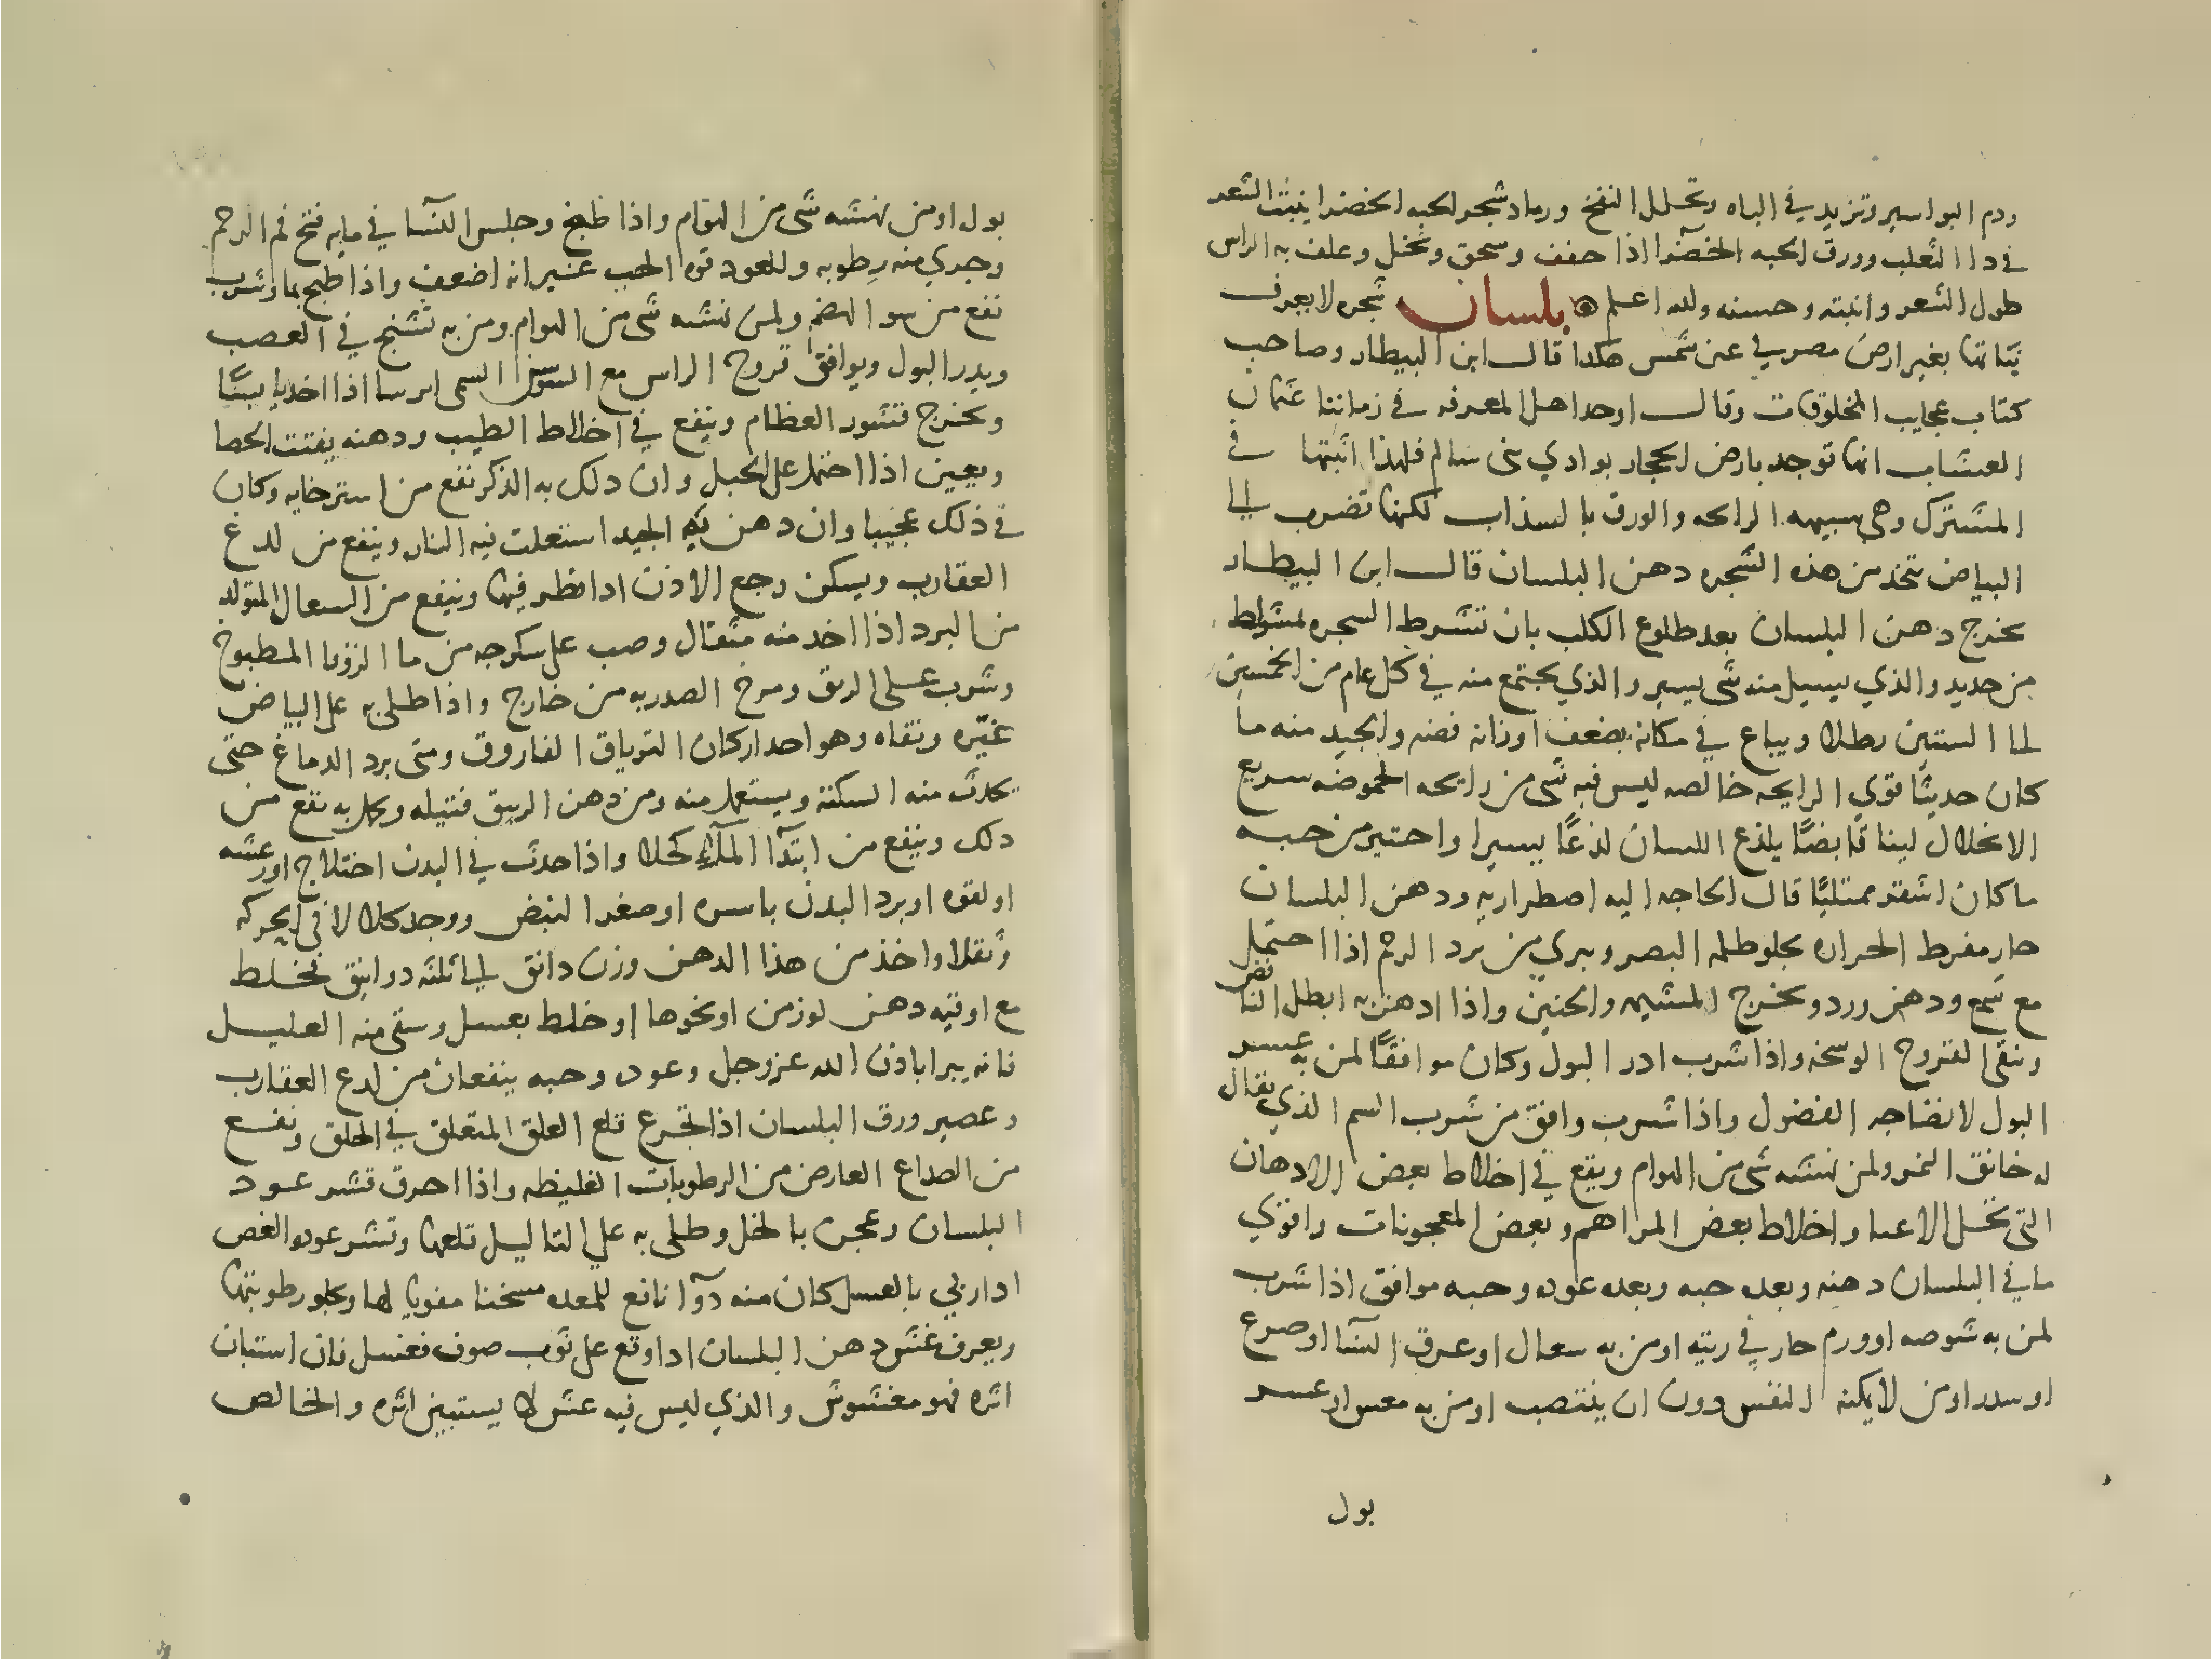 ودم البواسير وتزيد في الباه وتحلل النفخ ورماد شجر الحبه الخضرا ينبت الشعر
في دا الثعلب وورق الحبه الخضرا اذا جفف وسحق ونخل وغلف به الراس
طول الشعر وانبته وحسنه والله اعلم بلسان شجره لا يعرف
نباتها بغير ارض مصر في عين شمس هكذا قال ابن البيطار وصاحب
كتاب عجايب المخلوقات وقال اوحد اهل المعرفه في زماننا عثمان
العشاب انها توجد بارض الحجاز بوادي بني سالم فلهذا اثبتها في
المشترك وهي شبيهه الرايحه والورق بالسذاب لكنها تضرب الى
البياض يتخذ من هذه الشجره دهن البلسان قال ابن البيطار
يخرج دهن البلسان بعد طلوع الكلب بان تشرط الشجره بمشراط
من حديد والذي يسيل منه شي يسير والذي يجتمع منه في كل عام من الخمسين
الى الستين رطلا ويباع في مكانه بضعف اوزانه فضه والجيد منه ما
كان حديثا قوي الرايحه خالصه ليس فيه شي من رايحه الحموضه سريع
الانحلال لينا قابضا يلذع اللسان لذعا يسيرا واختير من حبه
ما كان اشقر ممتليا فان الحاجه اليه اضطراريه ودهن البلسان
حار مفرط الحراره يجلو ظلمه البصر ويبري من برد الرحم اذا احتمل
مع شمع ودهن ورد ويخرج المشيمه والجنين واذا ادهن به ابطل النافض
ونقى القروح الوسخه واذا شرب ادر البول وكان موافقا لمن به عسر
البول لانضاجه الفضول واذا شرب وافق من شرب السم الذي يقال
له خانق النمر ولمن نهشه شي من الهوام ويقع في اخلاط بعض الادهان
التي تحل الاعيا واخلاط بعض المراهم وبعض المعجونات واقوي
ما في البلسان دهنه وبعده حبه وبعده عوده وحبه موافق اذا شرب
لمن به شوصه او ورم حار في ريته او من به سعال او عرق النسا او صرع
او سدر او من لا يمكنه النفس دون ان ينتصب او من به مغص او عسر
بول
بول او من نهشه شي من الهوام واذا طبخ وجلس النسا في مايه فتح فم الرحم
وجري منه رطوبه وللعود قوه الحب غير انه اضعف واذا طبخ بما وشرب
نفع من سو الهضم ولمن نهشه شي من الهوام ومن به تشنج في العصب
ويدر البول ويوافق قروح الراس مع السوسن المسمى ايرسا اذا اخد يابسا
ويخرج قشور العظام ويقع في اخلاط الطيب ودهنه يفتت الحصا
ويعين اذا احتمل على الحبل وان دلك به الذكر نفع من استرخايه وكان
في ذلك عجيبا وان دهن به الجيد اشتعلت فيه النار وينفع من لدغ
العقارب ويسكن وجع الاذن اذا قطر فيها وينفع من السعال المتولد
من البرد اذا اخد منه مثقال وصب على سكرجه من ما الزوفا المطبوخ
وشرب على الريق ومرخ الصدر به من خارج واذا طلي به على البياض
غيره ونقاه وهو احد اركان الترياق الفاروق ومتى برد الدماغ حتى
يحدث منه السكتة ويستعمل منه ومن دهن الزيبق فتيله نفع من
دلك وينفع من ابتدا المآ كحلا واذا حدث في البدن اختلاج او رعشه
او لقوه او برد البدن باسره او صغر النبض ووجد كلالا في الحركه
وثقلا واخذ من هذا الدهن وزن دانق الى ثلثه دوانق يخلط
مع اوقيه دهن لوز من او نحوها او خلط بعسل وسقي منه العليل
فانه يبرا باذن الله عز وجل وعوده وحبه ينفعان من لدغ العقارب
وعصير ورق البلسان اذا تجرع قلع العلق المتعلق في الحلق ونفع
من الصداع العارض من الرطوبات الغليظه واذا احرق قشر عود
البلسان وعجن بالخل وطلي به على التاليل قلعها وقشر عوده الغض
اذا ربي بالعسل كان منه دوآ نافع للمعده مسخنا مقويا لها ويجلو رطوبتها
ويعرف غش دهن البلسان اذا وقع على ثوب صوف فغسل فان استبان
اثره فهو مغشوش والذي ليس فيه غش لا يستبين اثره والخالص